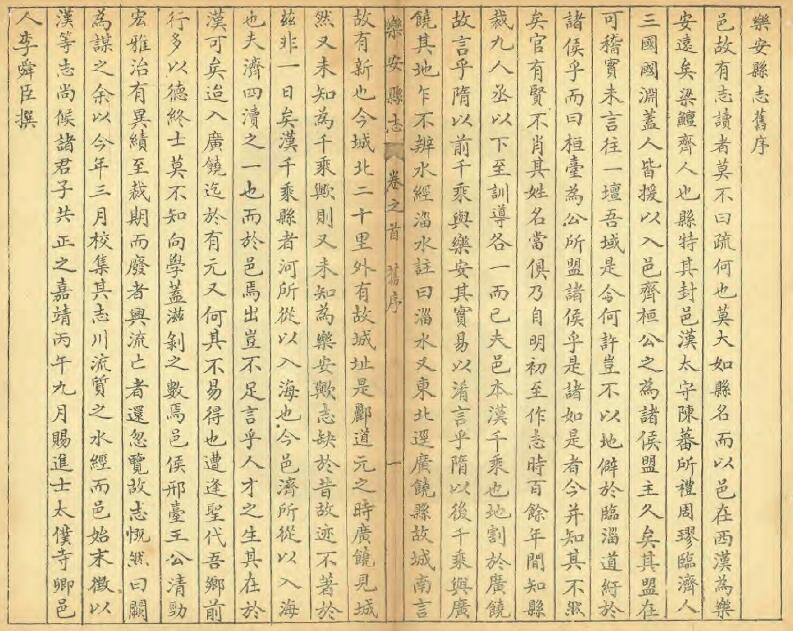 樂安縣志舊序
邑故有志讀者莫不曰疏何也莫大如縣名而以邑在西漢為樂
安遠矣梁鱣齊人也縣特其封邑漢太守陳蕃所禮周璆臨濟人
三國國淵蓋人皆援以入邑齊桓公之為諸侯盟主久矣其盟在
可稽實未言往一壇吾域是令何許豈不以地僻於臨淄道紆於
諸侯乎而曰桓臺為公所盟諸侯乎是諸如是者今并知其不然
矣官有賢不肖其姓名當俱乃自明初至作志時百餘年間知縣
裁九人丞以下至訓導各一而已夫邑本漢千乘也地割於廣饒
故言乎隋以前千乘與樂安其實易以淆言乎隋以後千乘與廣
饒其地乍不辨水經淄水註曰淄水又東北逕廣饒縣故城南言
樂安縣志 卷之首 舊序 一
故有新也今城北二十里外有故城址是酈道元之時廣饒見城
然又未知為千乘歟則又未知為樂安歟志缺於昔故迹不著於
茲非一日矣漢千乘縣者河所從以入海也今邑濟所從以入海
也夫濟四瀆之一也而於邑焉出豈不足言乎人才之生其在於
漢可矣迨入廣饒迄於有元又何其不易得也遭逢聖代吾鄉前
行多以德終士莫不知向學蓋滋剝之數焉邑侯邢臺王公清勁
宏雅治有異績至裁期而廢者興流亡者還忽覽故志慨然曰闕
為謀之余以今年三月校集其志川流質之水經而邑始末徵以
漢等志尚候諸君子共正之嘉靖丙午九月賜進士太僕寺卿邑
人李舜臣撰